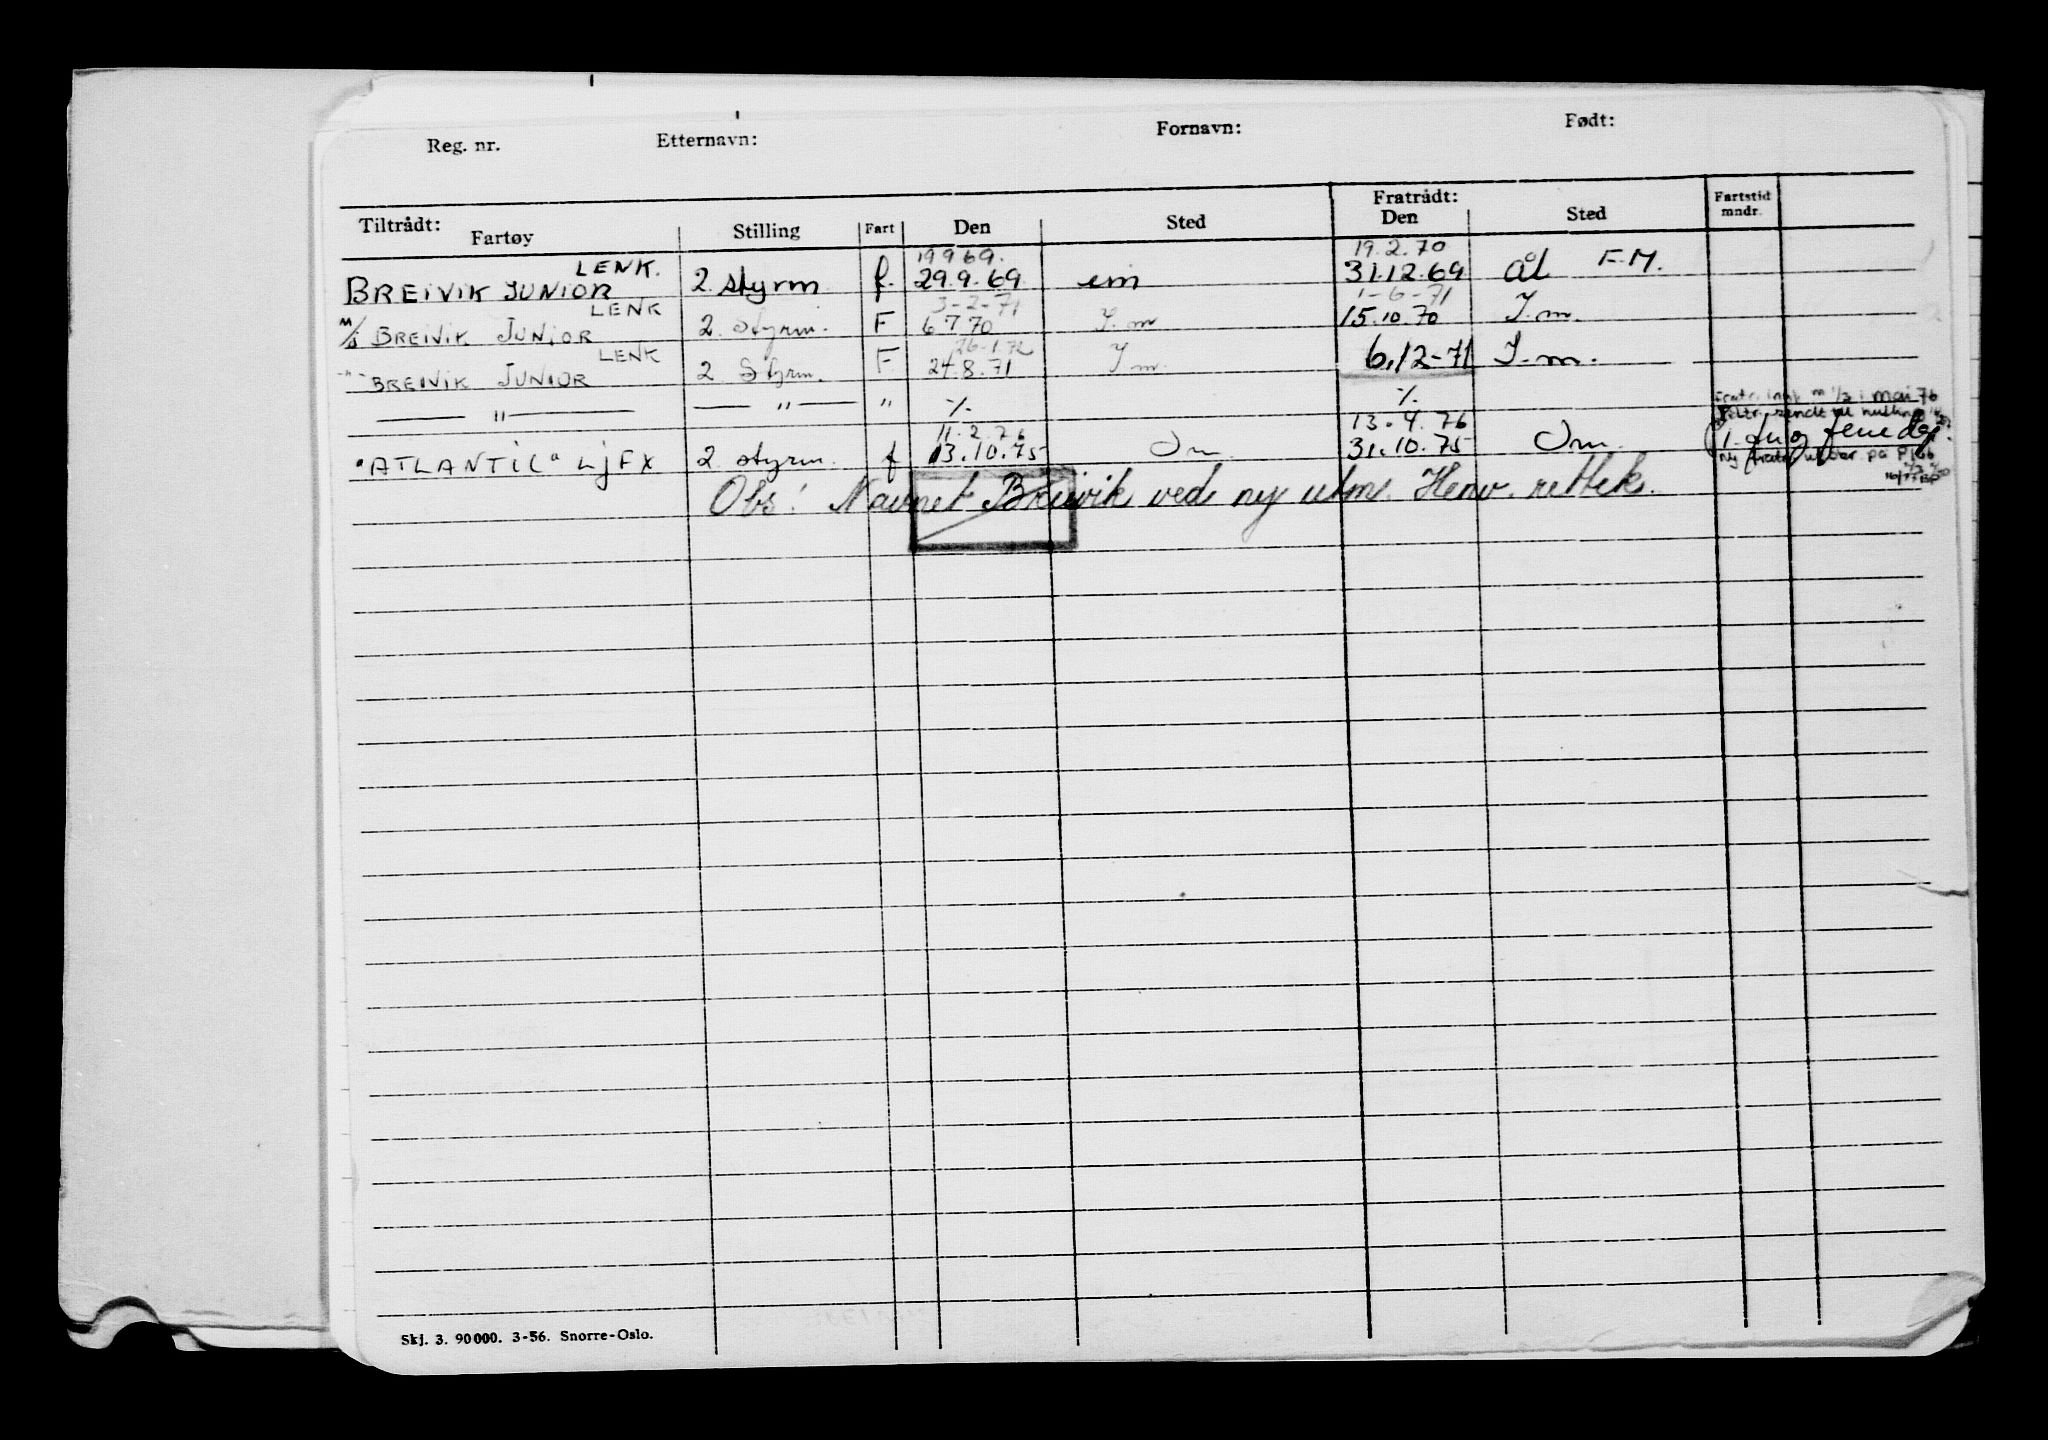 Reg. nr. Etternavn: Fornavn: Født:
Tiltrådt: Fratrådt:
Fartøy Stilling Fart Den Sted Den Sted Fartstid mndr.
LENK. 19 9 69. 19.2.70
BREIVIK JUNIOR 2 styrm f. 29.9.69 em 31.12.69 ål F.M.
LENK 3-2-71 1-6-71
M/S BREIVIK JUNIOR 2. Styrm. F 6 7 70 I.m 15.10.70 I.m.
LENK 26-1.72
-"- BREIVIK JUNIOR 2 Styrm. F 24.8.71 I m. 6.12-71 I.m.
— " — — " — " ٪ ٪
11.2.76 13.4.76
"ATLANTIC" LJFX 2 styrm. f 13.10.75 Om 31.10.75 Om.
mai 76
sendt til
Ny på
Obs! Navnet Breivik ved ny utm. Henv. rettek.
Skj. 3. 90000. 3-56. Snorre-Oslo.